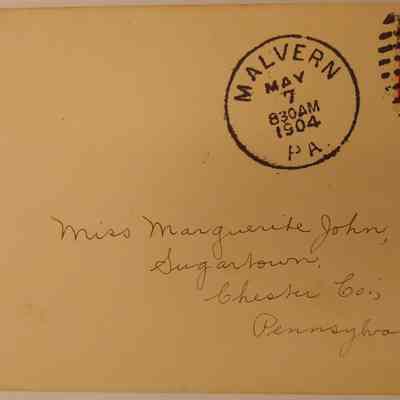 MALVERN
MAY
7
830AM
1904
PA.
Miss Marguerite John,
Sugartown,
Chester Co.,
Pennsylva